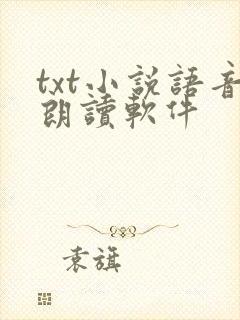 txt小説語音
朗讀軟件
袁旗